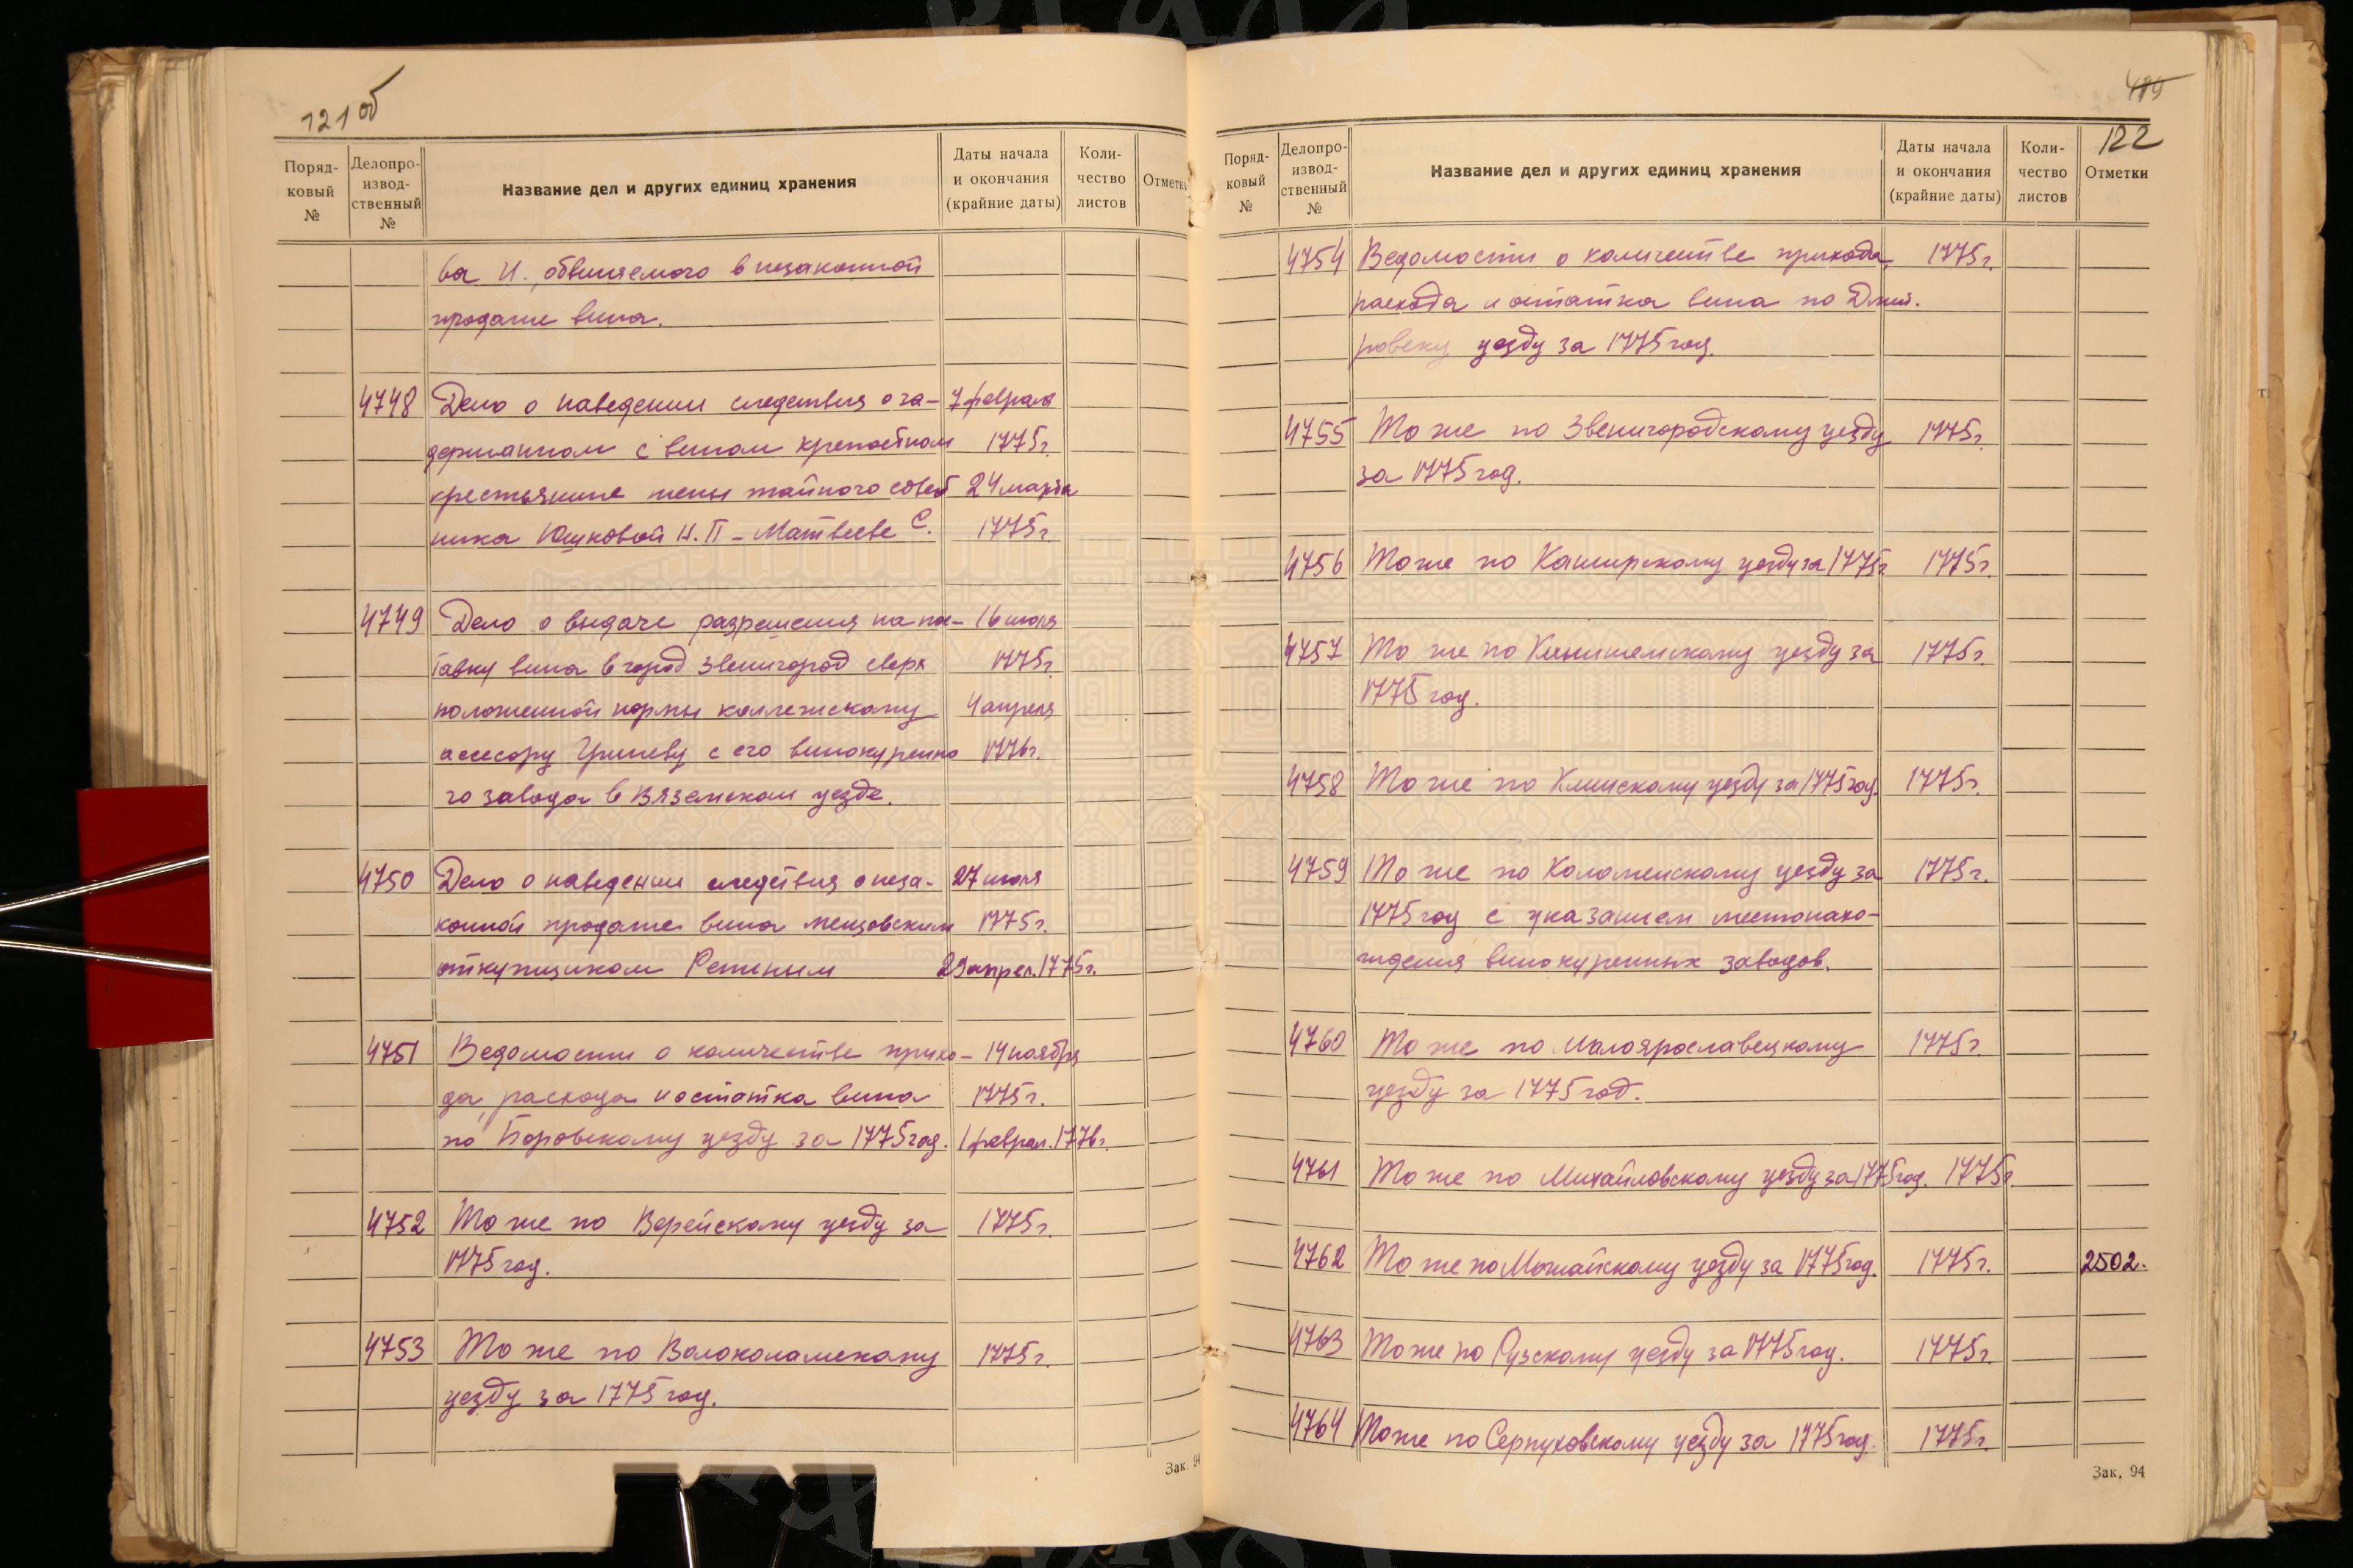 121об
Поряд-
ковый
№
Делопро-
извод-
ственный
№
Название дел и других единиц хранения
Даты начала
и окончания
(крайние даты)
Коли-
чество
листов
Отметк
ва И., обвиняемого в незаконной
продаже вина.
4748 Дело о наведении следствия о за- 7 февраля
держанном с вином крепостном 1775г.
крестьянине жены тайного совет 24 марта
ника Юшковой Н.П - Матвееве С. 1775г.
4749 Дело о выдаче разрешения на пос- 16 июля
тавку вина в город Звенигород сверх 1775г.
положенной нормы коллежскому 4 апреля
асессору Гриневу с его винокуренно 1776г.
го завода в Вяземском уезде.
4750 Дело о наведении следствия о неза- 27 июля
конной продаже вина мещовским 1775г.
откупщиком Репиным 29 апрел. 1775г.
4751 Ведомости о количестве прихо- 14 ноября
да, расхода и остатка вина 1775г.
по Боровскому уезду за 1775год. 1 феврал. 1776г.
4752 То же по Верейскому уезду за 1775г.
1775 год.
4753 То же по Волоколамскому 1775г.
уезду за 1775 год.
Зак. 94
489
122
Поряд-
ковый
№
Делопро-
извод-
ственный
№
Название дел и других единиц хранения
Даты начала
и окончания
(крайние даты)
Коли-
чество
листов
Отметки
4754 Ведомости о количестве прихода, 1775г.
расхода и остатка вина по Дмит.
ровску уезду за 1775 год.
4755 То же по Звенигородскому уезду 1775г.
за 1775 год.
4756 То же по Каширскому уезду за 1775г. 1775г.
4757 То же по Кинишемскому уезду за 1775г.
1775 год.
4758 То же по Клинскому уезду за 1775 год. 1775г.
4759 То же по Коломенскому уезду за 1775г.
1775 год с указанием местонахо-
ждения винокуренных заводов.
4760 То же по Малоярославецкому 1775г.
уезду за 1775 год.
4761 То же по Михайловскому уезду за 1775 год. 1775г
4762 То же по Можайскому уезду за 1775 год. 1775г. 2502.
4763 То же по Рузскому уезду за 1775 год. 1775г.
4764 То же по Серпуховскому уезду за 1775 год. 1775г.
Зак. 94